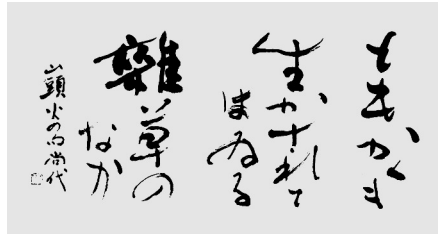 ともかくも
生かされて
はゐる
雑草の
なか
山頭火の句 尚代